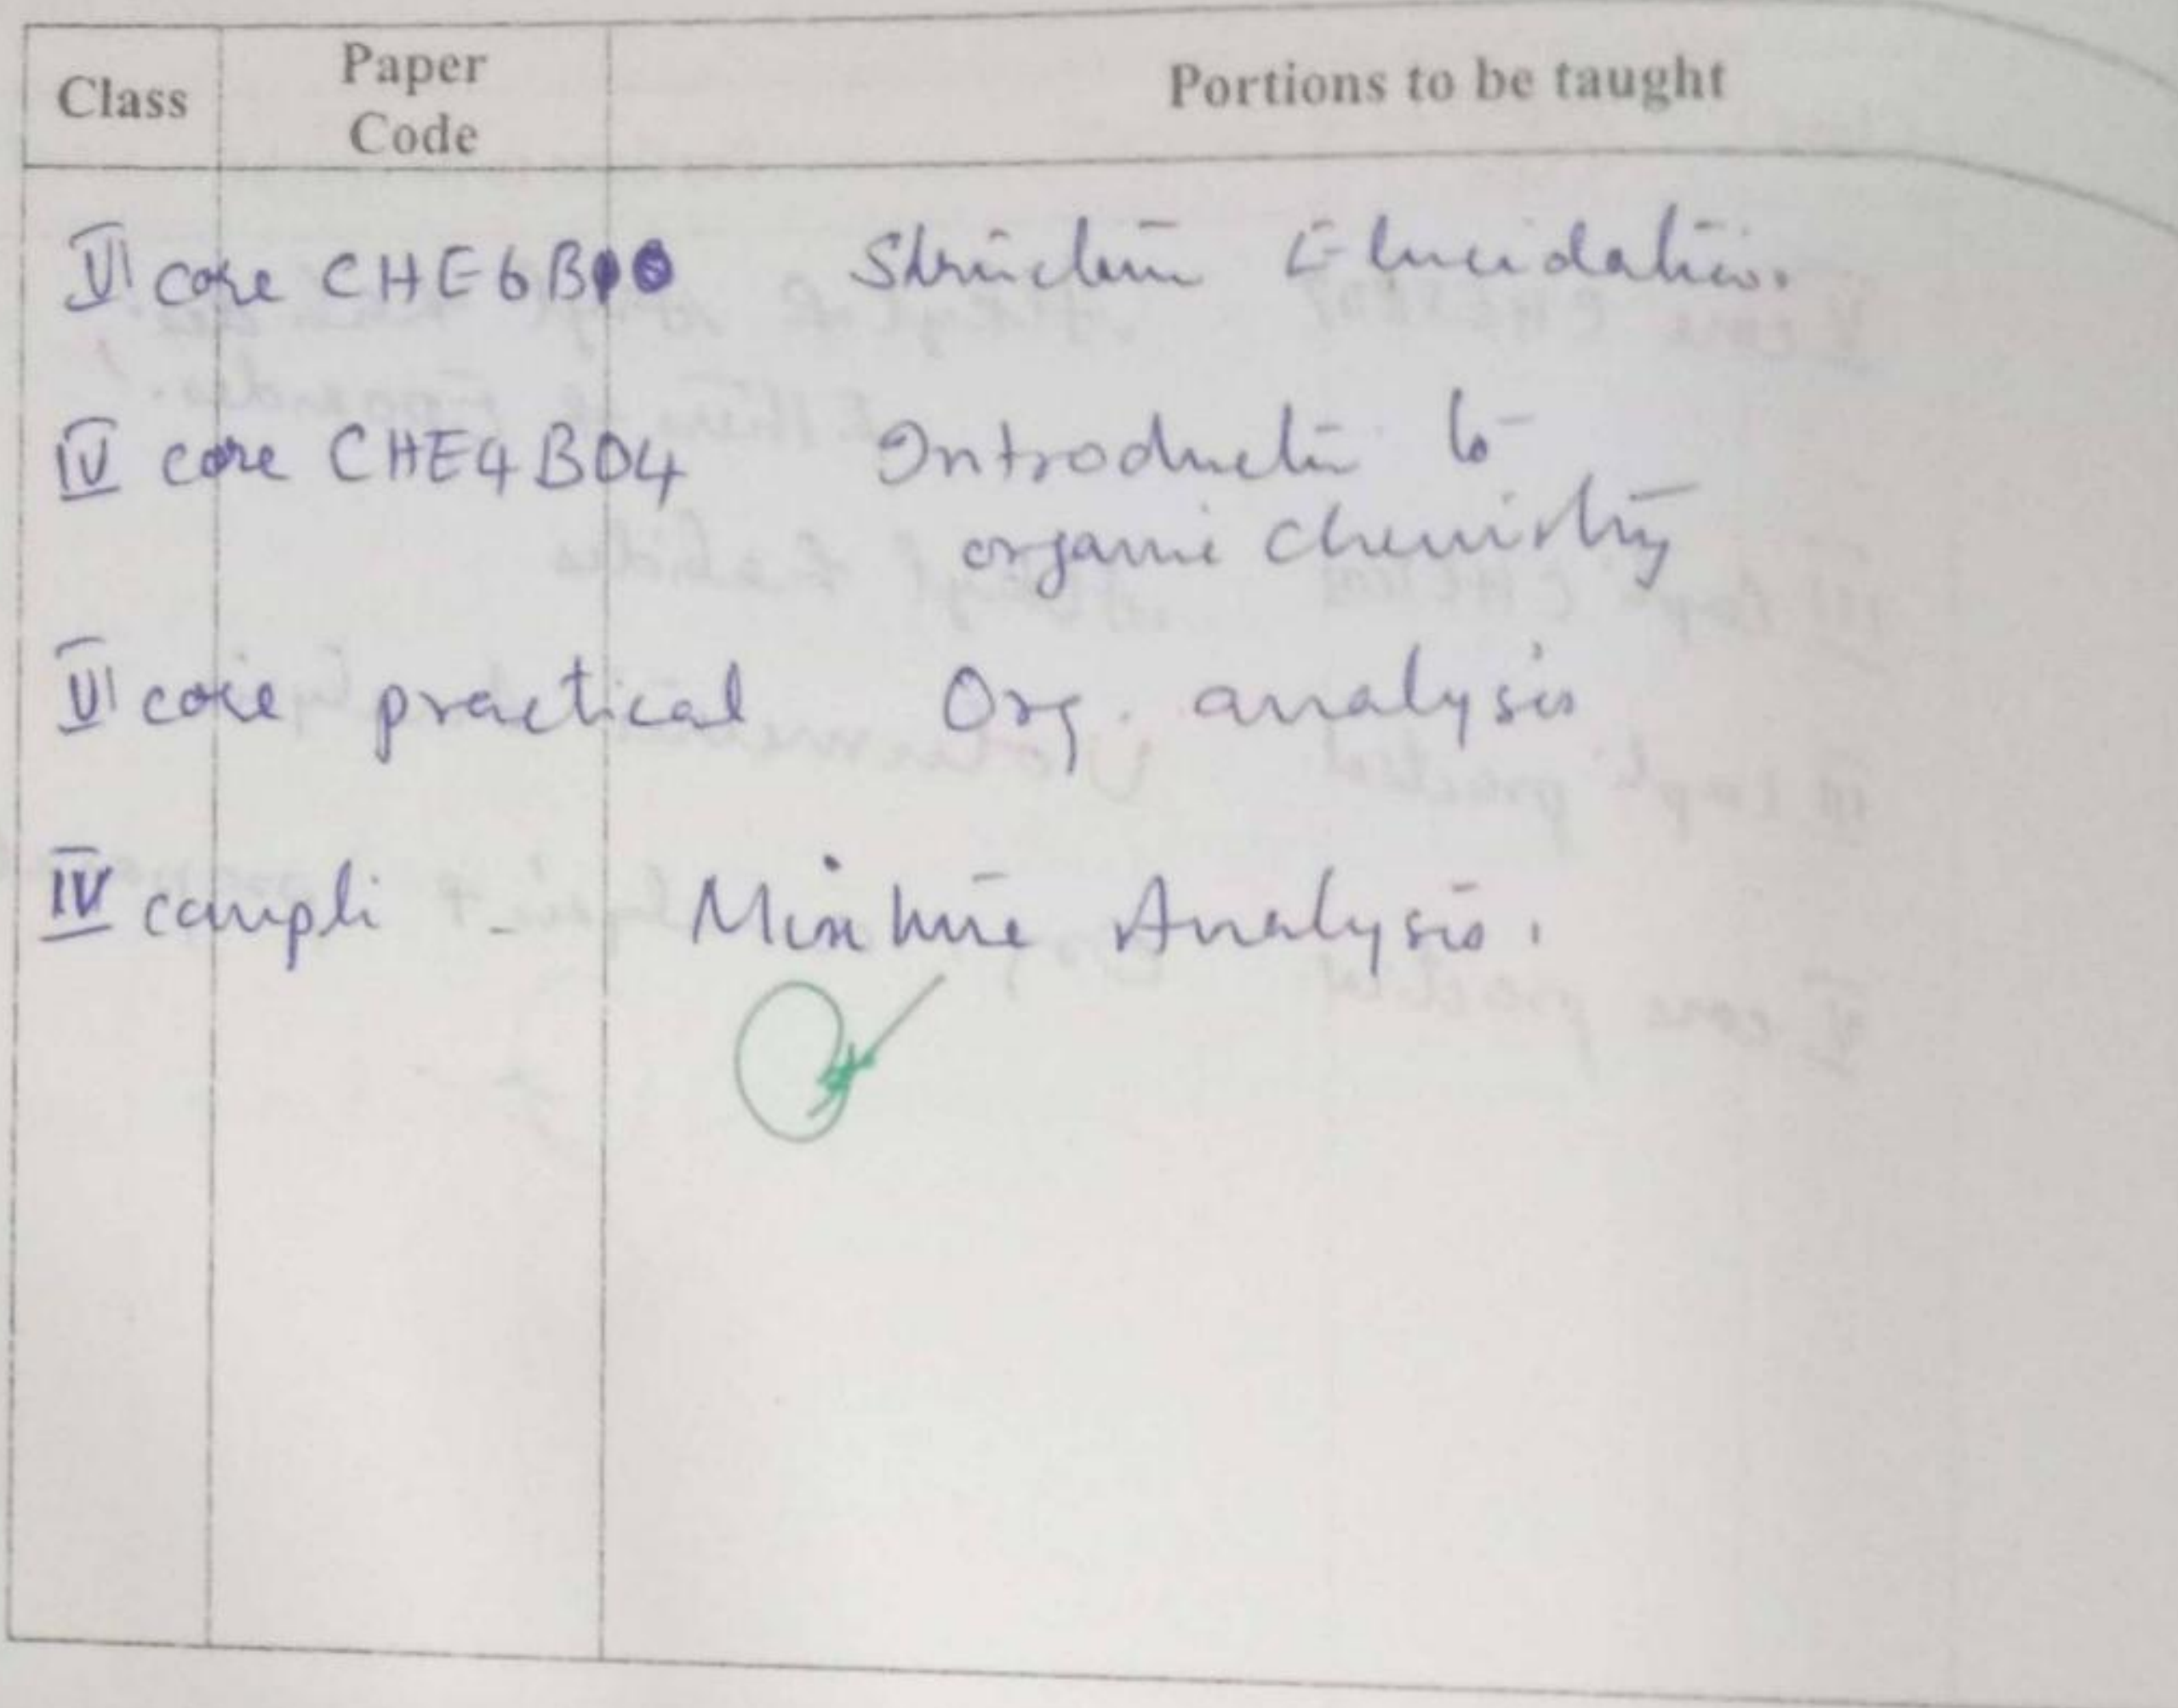 Class Paper Code Portions to be taught
VI core CHE6B10 Structure Elucidation.
IV core CHE4B04 Introduction to
organic chemistry
VI core practical Org. analysis
IV compli - Mixture Analysis.